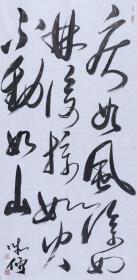 疾如風徐如
林侵掠如火
不動如山